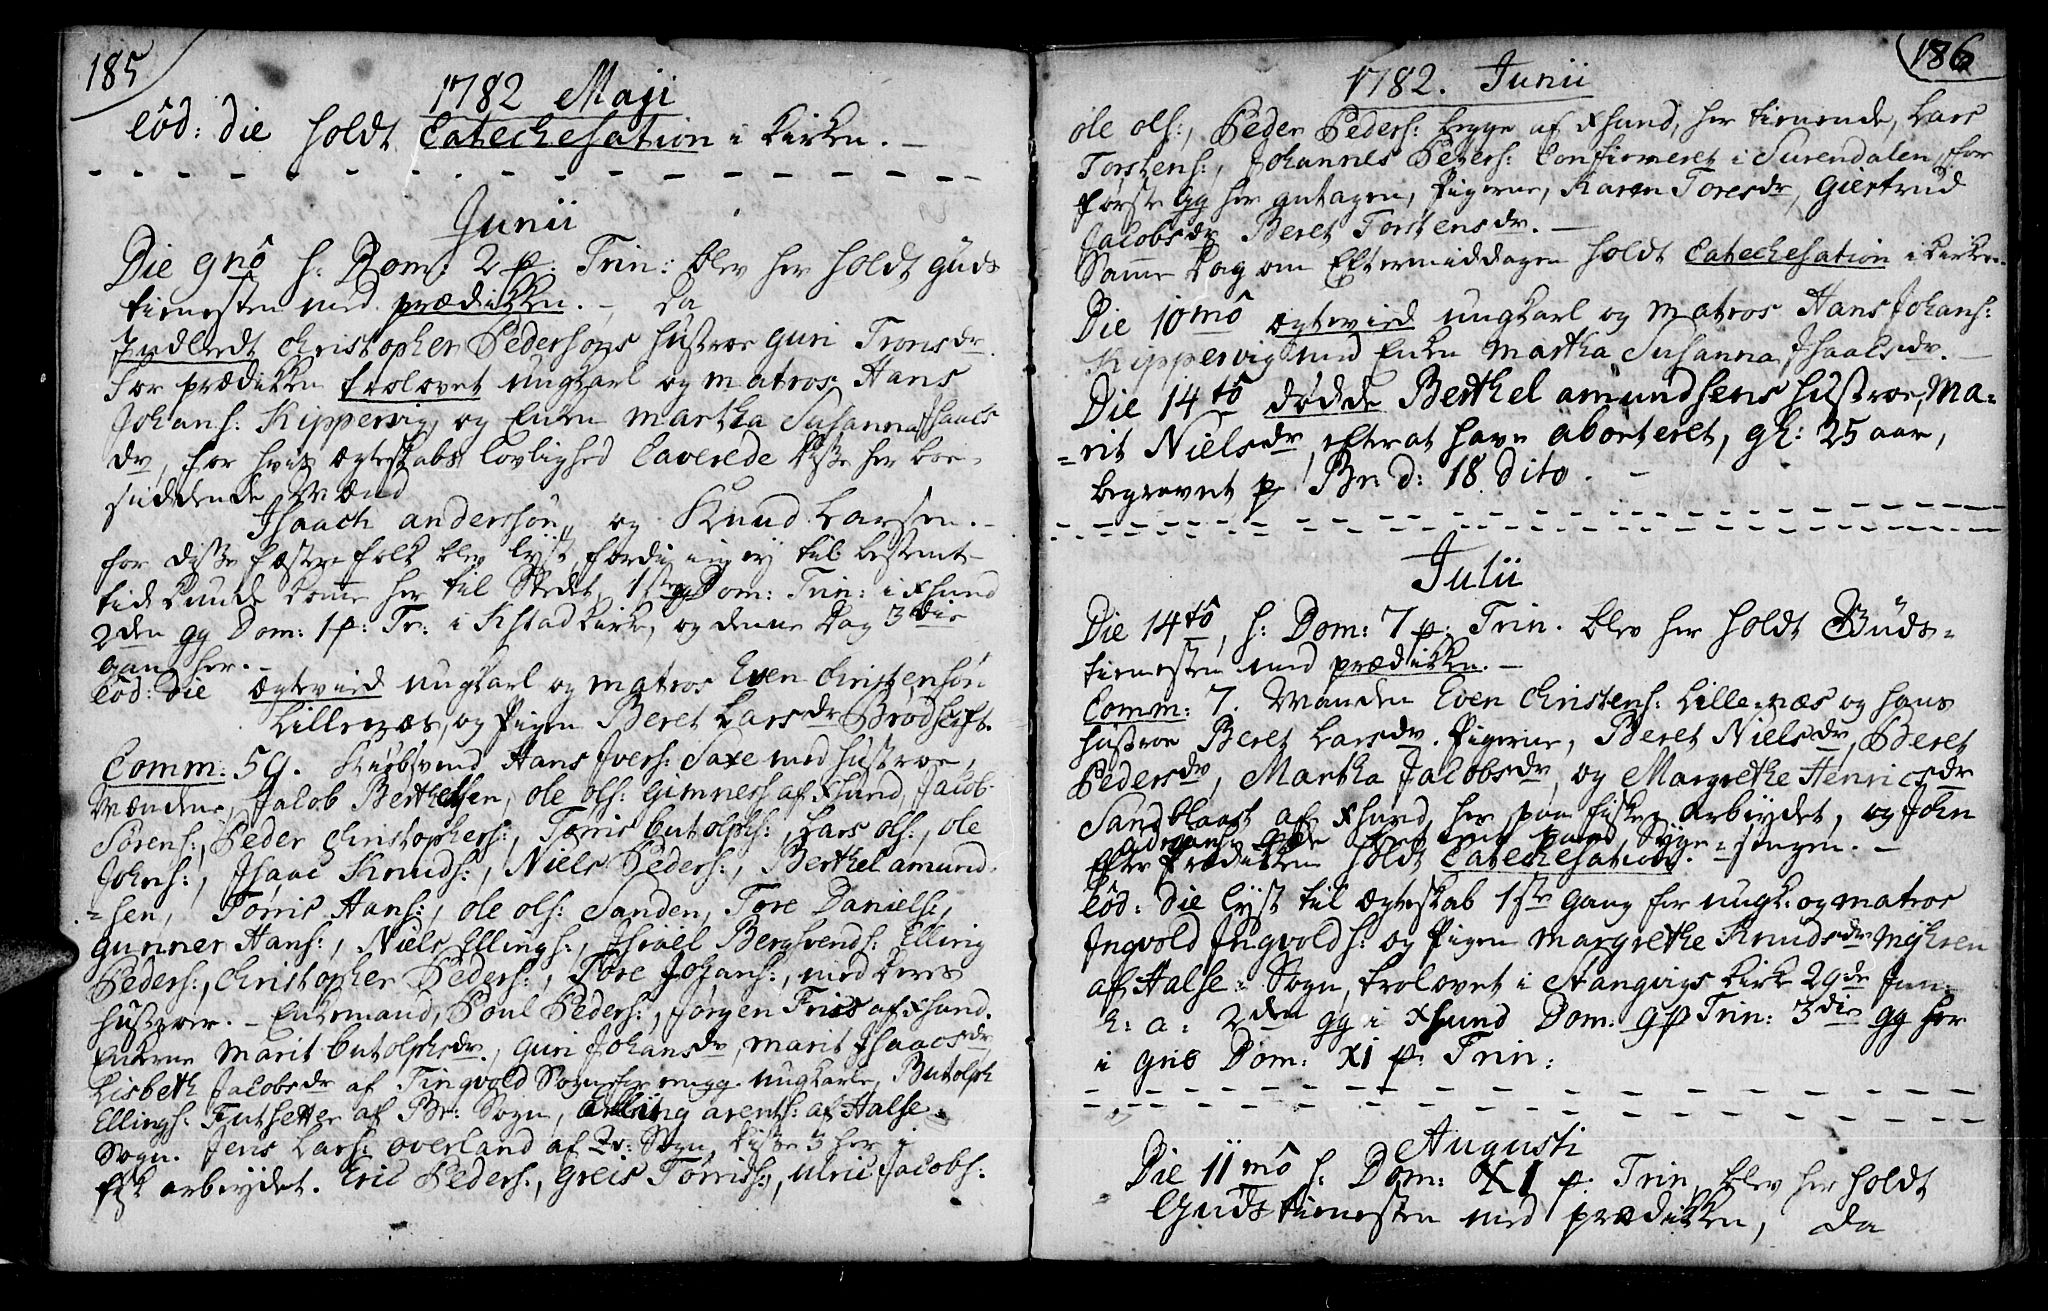 185
1782 Maji
Eôd: die holdt Catechesation i Kirken. –
Junii
Die 9nô h: Dom: 2 p: Trin: blev her holdt Guds
tienesten med prædikken. – Da
Indledt Christopher Pedersøns Hustroe Guri Tronsdr.
For prædikken trolovet ungkarl og matros Hans
Johans: Kippervig, og Enken Martha Susanna Jsaacs
dr, for hvis ægteskabs lovlighed Caverede disse her boe-
siddende Mænd
Jsaach anderssøn, og Knud Larsen. –
for disse fæstefolk blev lyst, fordi ey til bestemte
tid kunde komme her til Stedet, 1ste gg Dom: Trin: i Xsund
2den gg Dom: 1 p: Tr: i Kstad Kirke, og denne Dag 3die
gang her. –
Eôd: die ægtevied ungkarl og matros Even Christensøn
Lillenæs, og Pigen Beret Larsdr Brødskift.
Comm: 59. Kiøbsvend Hans Jvers: Saxe med Hustroe,
Mændene, Jacob Berthelsen, Ole Ols: Gimnes af Xsund, Jacob
Sørens:, Peder Christophers:, Tørris Butolphs:, Lars Ols:, Ole
Johns:, Jsaac Knuds:, Niels Peders:, Berthel amund-
=sen, Tørris Hans:, Ole Ols: Sanden, Tore Daniels:,
Gunner Hans:, Niels Ellings:, Jsraël Bergsvends: Elling
Peders:, Christopher Peders:, Tore Johans:, med deres
Hustroer. – Enkemand, Poul Peders:, Jørgen Friis af Xsund.
Enkerne Marit Butolphsdr, Guri Johansdr, Marit Jsaacsdr,
Lisbeth Jacobsdr af Tingvold Sogn ungkarle, Butolph
Ellings: Futsetter af Br: Sogn, Elling arents: af Halse
Sogn. Jens Lars: Overland af Sogn, disse 3 her i
fisk arbeydet. Eric Peders:, Greis Tørris:, Ulric Jacobs:
186
1782. Junii
Ole Ols:, Peder Peders: begge af Xsund, her tienende, Lars
Torstens:, Johannes Peders: Confirmeret i Surendalen, for
første gg her antagen, Pigerne, Karen Toresdr, Giertrud
Jacobsdr Beret Torstensdr. –
Samme Dag om Eftermiddagen holdt Catechesation i Kirken.
Die 10mô ægtevied ungkarl og matros Hans Johans:
Kippervig med Enken Martha Susanna Jsaacsdr. –
Die 14tô dødde Berthel amundsens Hustroe, Ma=
=rit Nielsdr, efterat have aborteret, gl: 25 aar,
begravet p Br: d: 18 dito. –
Julii
Die 14tô, h: Dom: 7 p: Trin. blev her holdt Guds=
tienesten med prædikken. –
Comm: 7. Manden Even Christens: Lillenæs og hans
Hustroe Beret Larsdr. Pigerne, Beret Nielsdr, Beret
Pedersdr, Martha Jacobsdr, og Margrethe Henricsdr
Sandblaast af Xsund, her paa fiske arbeydet, og John
Syge=sengen. –
Efter Prædikken holdt Catechesation.
Eôd: Die lyst til ægteskab 1ste gang for ungk: og matros
Jngvold Jngvolds: og Pigen Margrethe Knudsdr Myhren
af Halse Sogn, trolovet i Stangvigs Kirke 29de Jun:
h: a: 2den gg i Xsund Dom: 9 p Trin: 3die gg her
i Dom: XI p: Trin:
Augusti
Die 11mô h: Dom: XI p: Trin, blev her holdt
Guds tienesten med prædikken, da